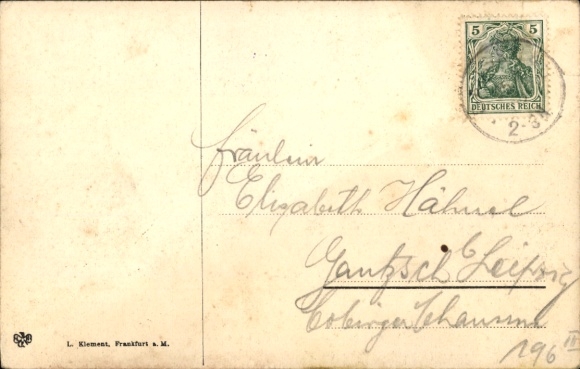 5 5
DEUTSCHES REICH
2-3
Fräulein
Elisabeth Hähnel
Gautzsch b. Leipzig
196 III
L. Klement, Frankfurt a. M.